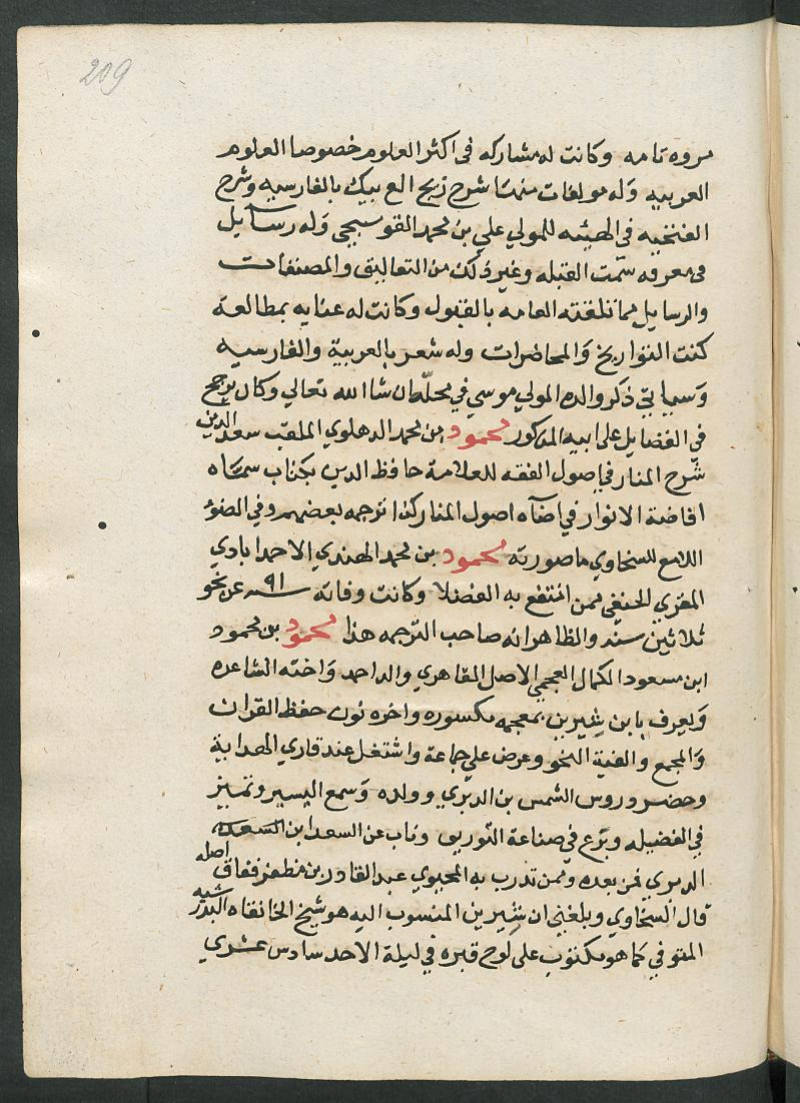 209
مروه تامه وكانت له مشاركه فى اكثر العلوم خصوصا العلوم
العربيه وله مولفات منها شرح زيج الغ بيك بالفارسيه وشرح
الفتحيه فى الهيئه للمولي علي بن محمد القوسجى وله رسآيل
فى معرفه سمت القبله وغير ذلك من التعاليق والمصنفات
والرسايل مما تلقته العامه بالقبول وكانت له عنايه بمطالعة
كتب التواريخ والمحاضرات وله شعر بالعربية والفارسيه
وسياتي ذكر والده المولي موسي في محله ان شا الله تعالي وكان يرجح
في الفضايل على ابيه المذكور محمود بن محمد الدهلوي الملقب سعد الدين
شرح المنار في اصول الفقه للعلامة حافظ الدين بكتاب سماه
افاضة الانوار في اضآه اصول المنار كذا ترجمه بعضهم وفي الضوء
اللامع للسخاوي ما صورته محمود بن محمد الهندي الاحمدابادي
المقري الحنفي ممن انتفع به الفضلا وكانت وفاته سـ ٩١ ـه عن نحو
ثلاثين سنه والظاهر انه صاحب الترجمه هذا محمود بن محمود
ابن مسعود الكمال العجمي الاصل القاهري والد احمد واخته الشاعره
ويعرف بابن شيرين بمعجمه مكسوره واخره نون حفظ القران
والمجمع والفية النحو وعرض علي جماعة واشتغل عند قاري الهدايه
وحضر دروس الشمس بن الديري وولده وسمع اليسير وتميز
في الفضيله وبرع في صناعة التوريق وناب عن السعد ابن السعد
الديري فمن بعده وممن تدرب به المحيوي عبد القادر بن مظفر ففاق اصله
قال السخاوي وبلغني ان شيرين المنسوب اليه هو شيخ الخانقاه البدر شيه
المتوفي كما هو مكتوب على لوح قبره في ليلة الاحد سادس عشري